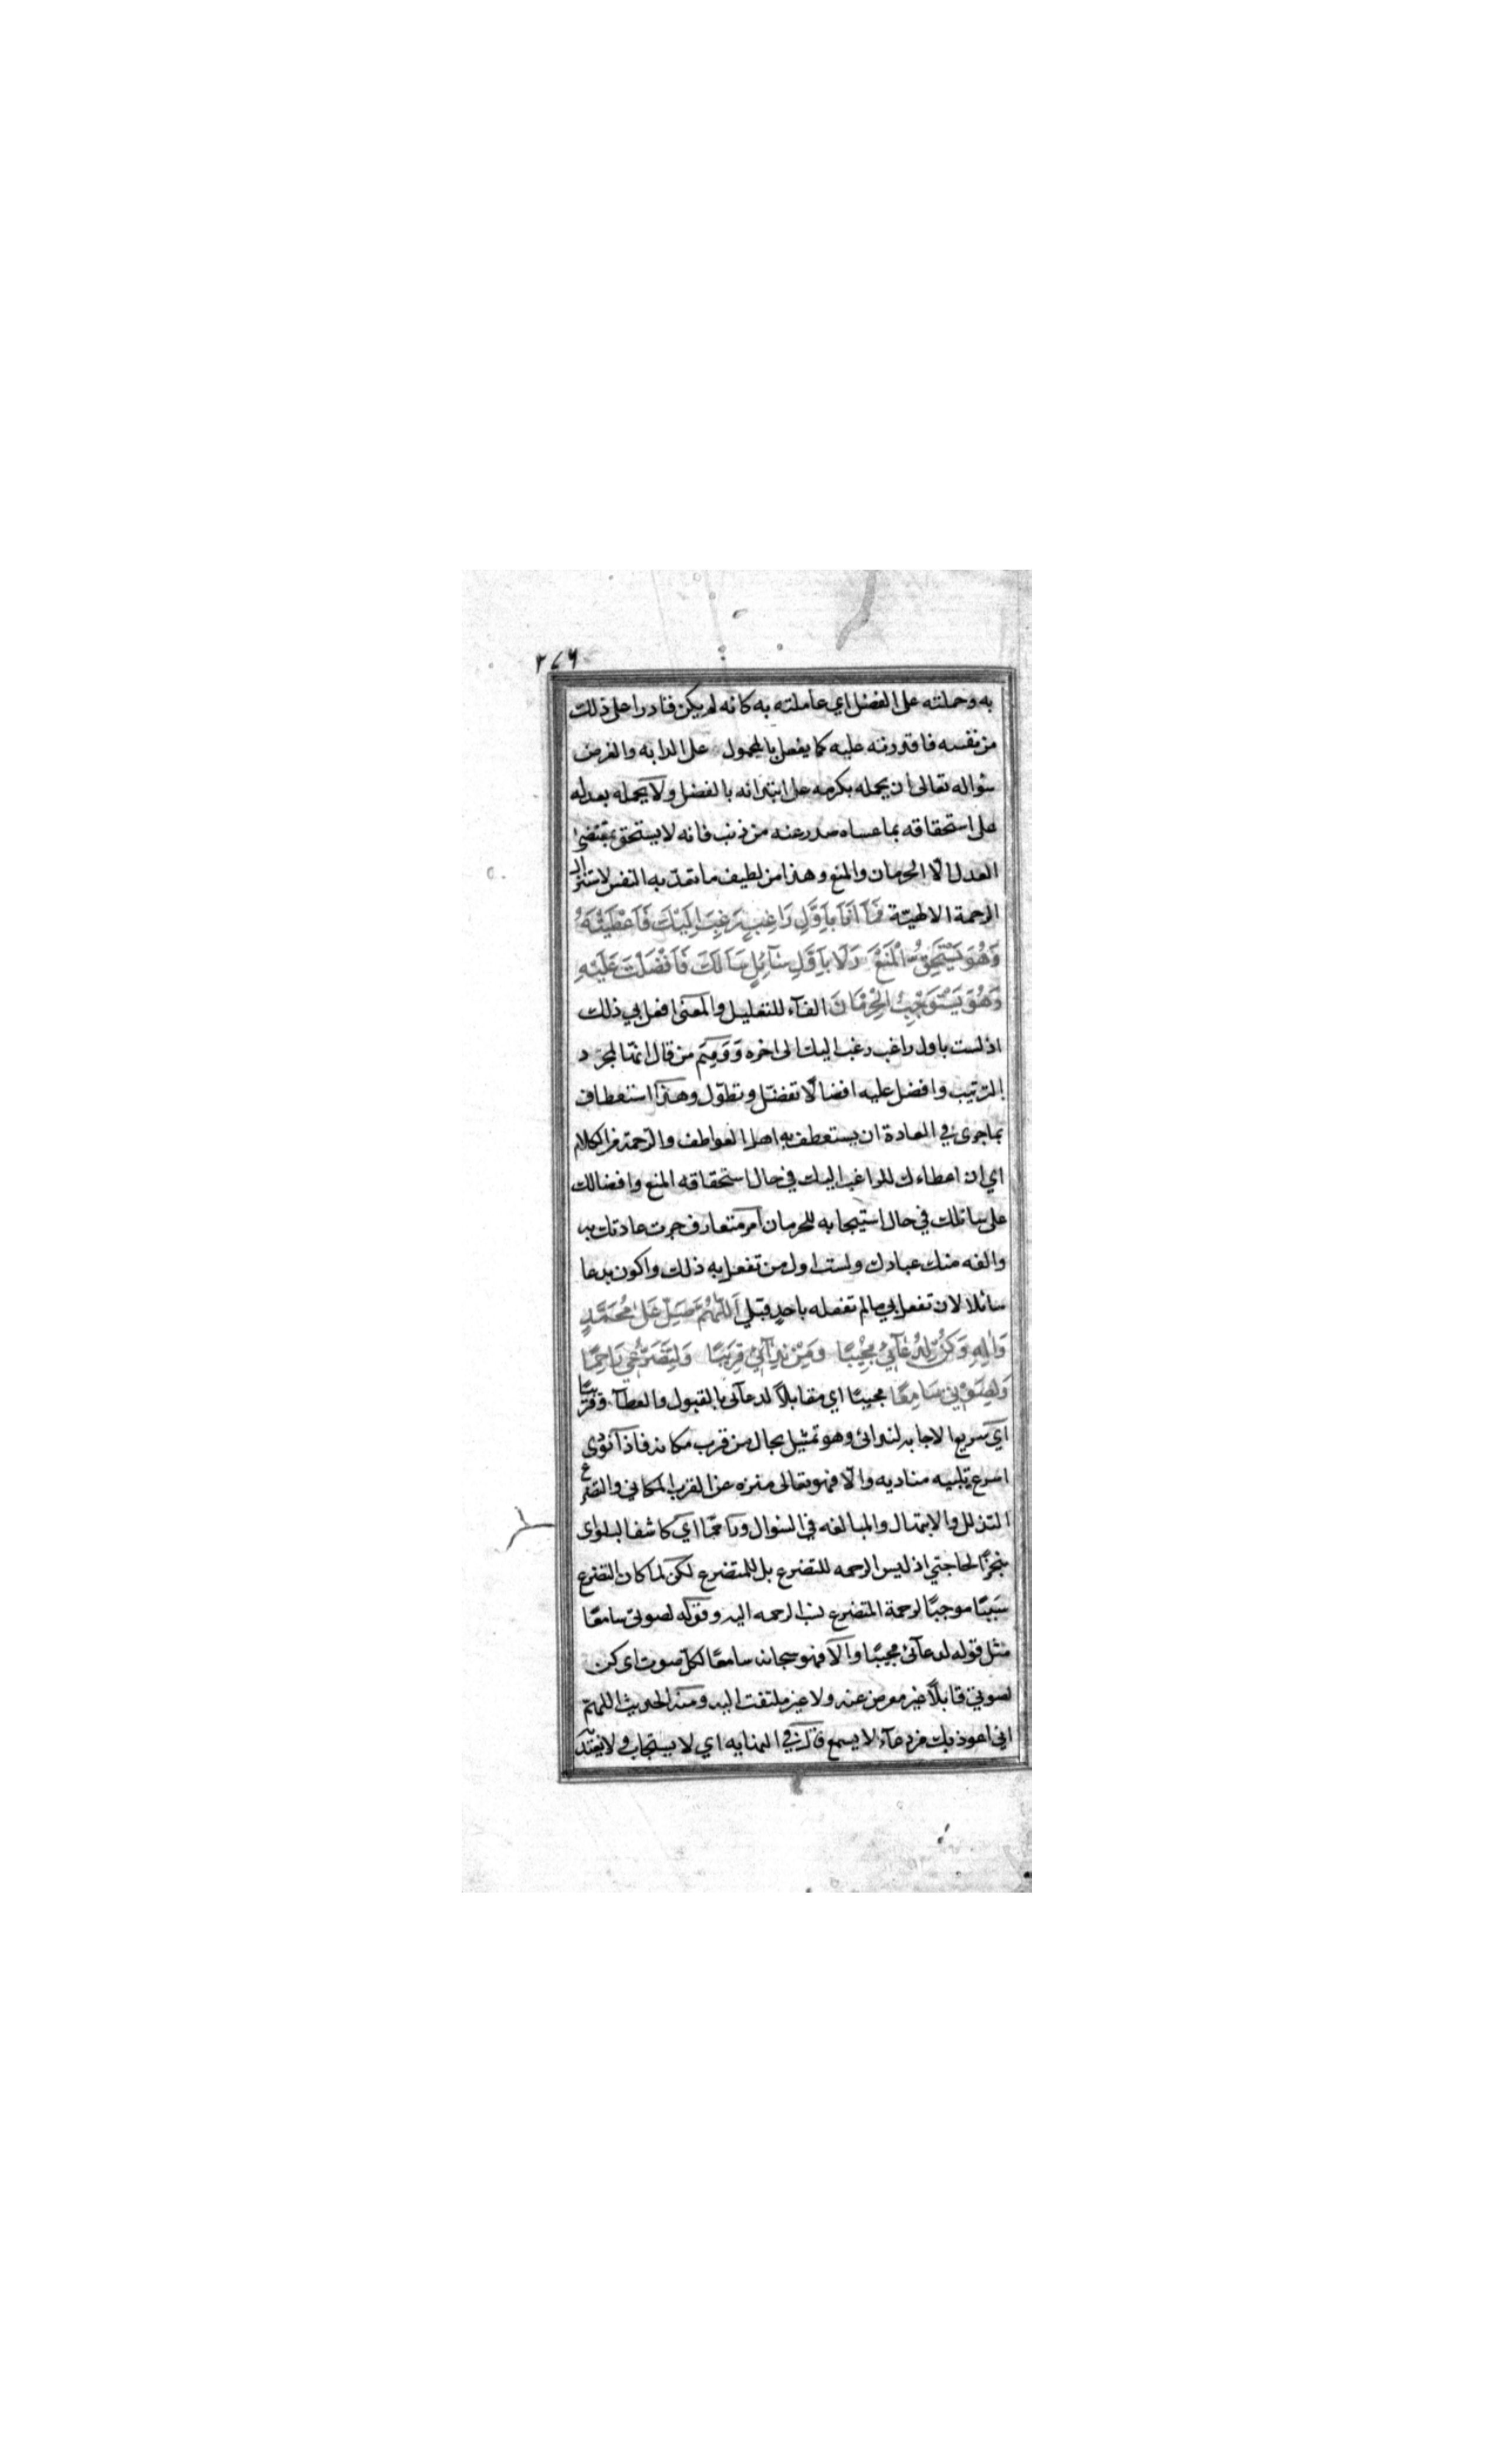 ٢٧٦
به وحملته على الفضل اي عاملته به كانه لم يكن قادرا على ذلك
من نفسه فاقدرته عليه كما يفعل بالمحمول على الدابه والغرض
سؤاله تعالى ان يحمله بكرمه على ابتدائه بالفضل ولا يحمله بعدله
على استحقاقه بما عساه صدر عنه من ذنب فانه لا يستحق بمقتضى
العدل الّا الحرمان والمنع وهذا من لطيف ما تعدّ به النفس لاستنزال
الرحمة الالهيّة فَمَا اَنَا بِاَوَّلِ رَاغِبٍ رَغِبَ اِلَيْكَ فَاَعْطَيْتَهُ
وَهُوَ يَسْتَحِقُّ الْمَنْعَ وَلَا بِاَوَّلِ سَآئِلٍ سَاَلَكَ فَاَفْضَلْتَ عَلَيْهِ
وَهُوَ يَسْتَوْجِبُ الْحِرْمَانَ الفآء للتعليل والمعنى افعل بي ذلك
اذ لست باول راغب رغب اليك الى اخره ووهم من قال انها لمجرّد
الترتيب وافضل عليه افضالًا تفضّل وتطوّل وهذا استعطاف
بما جرى في العادة ان يستعطف به اهل العواطف والرّحمة من الكلام
اي ان اعطاءك للراغب اليك في حال استحقاقه المنع وافضالك
على سائلك في حال استيجابه للحرمان امر متعارف جرت عادتك به
والفه منك عبادك ولست اول من تفعل به ذلك واكون بدعا
سائلا لان تفعل بي ما لم تفعله باحد قبلي اَللّٰهُمَّ صَلِّ عَلٰى مُحَمَّدٍ
وَاٰلِهِ وَكُنْ لِدُعَآئِي مُجِيْبًا وَمِنْ نِدَآئِي قَرِيْبًا وَلِتَضَرُّعِي رَاحِمًا
وَلِصَوْتِي سَامِعًا مجيبًا اي مقابلًا لدعآئى بالقبول والعطآء وقريبًا
اي سريع الاجابه لندائى وهو تمثيل بحال من قرب مكانه فاذا نودى
اسرع تلبيه مناديه والّا فهو تعالى منزه عن القرب المكاني والتضرع
التذلل والابتهال والمبالغه في السؤال وراحمًا اي كاشفا لبلواى
منجزًا لحاجتي اذ ليس الرحمه للتضرع بل للمتضرع لكن لما كان التضرع
سببًا موجبًا لرحمة المتضرع نسب الرحمه اليه وقوله لصوتى سامعًا
مثل قوله لدعآئى مجيبًا والّا فهو سبحانه سامعًا لكل صوت اى كن
لصوتي قابلًا غير معرض عنه ولا غير ملتفت اليه ومنه الحديث اللهمّ
اني اعوذ بك من دعآء لا يسمع قال في النهايه اي لا يستجاب ولا يعتد